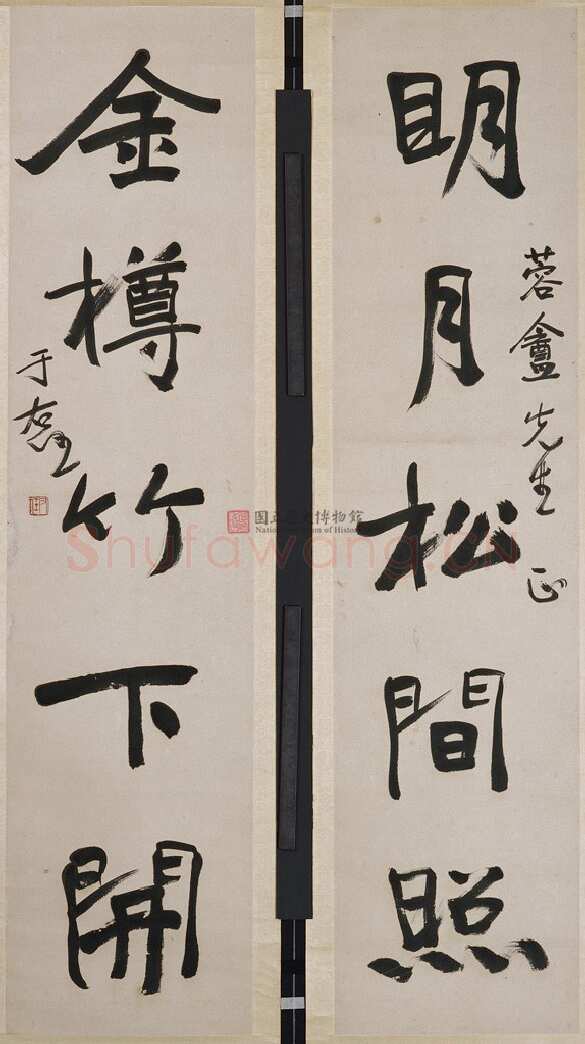 明月松間照
蓉盦先生 正
金樽竹下開
于右任
国立歷史博物館
National Museum of History
Shufawang.CN